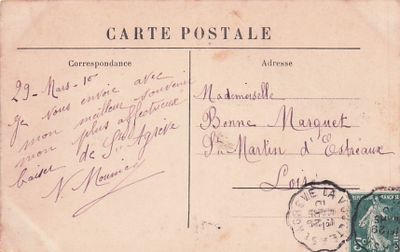 CARTE POSTALE
Correspondance
Adresse
29 - Mars - 10
Je vous envoie avec
mon meilleur souvenir
mon plus affectueux
baiser de St Agrève
Mademoiselle
Bonne Marquet
St Martin d'Estréaux
Loire